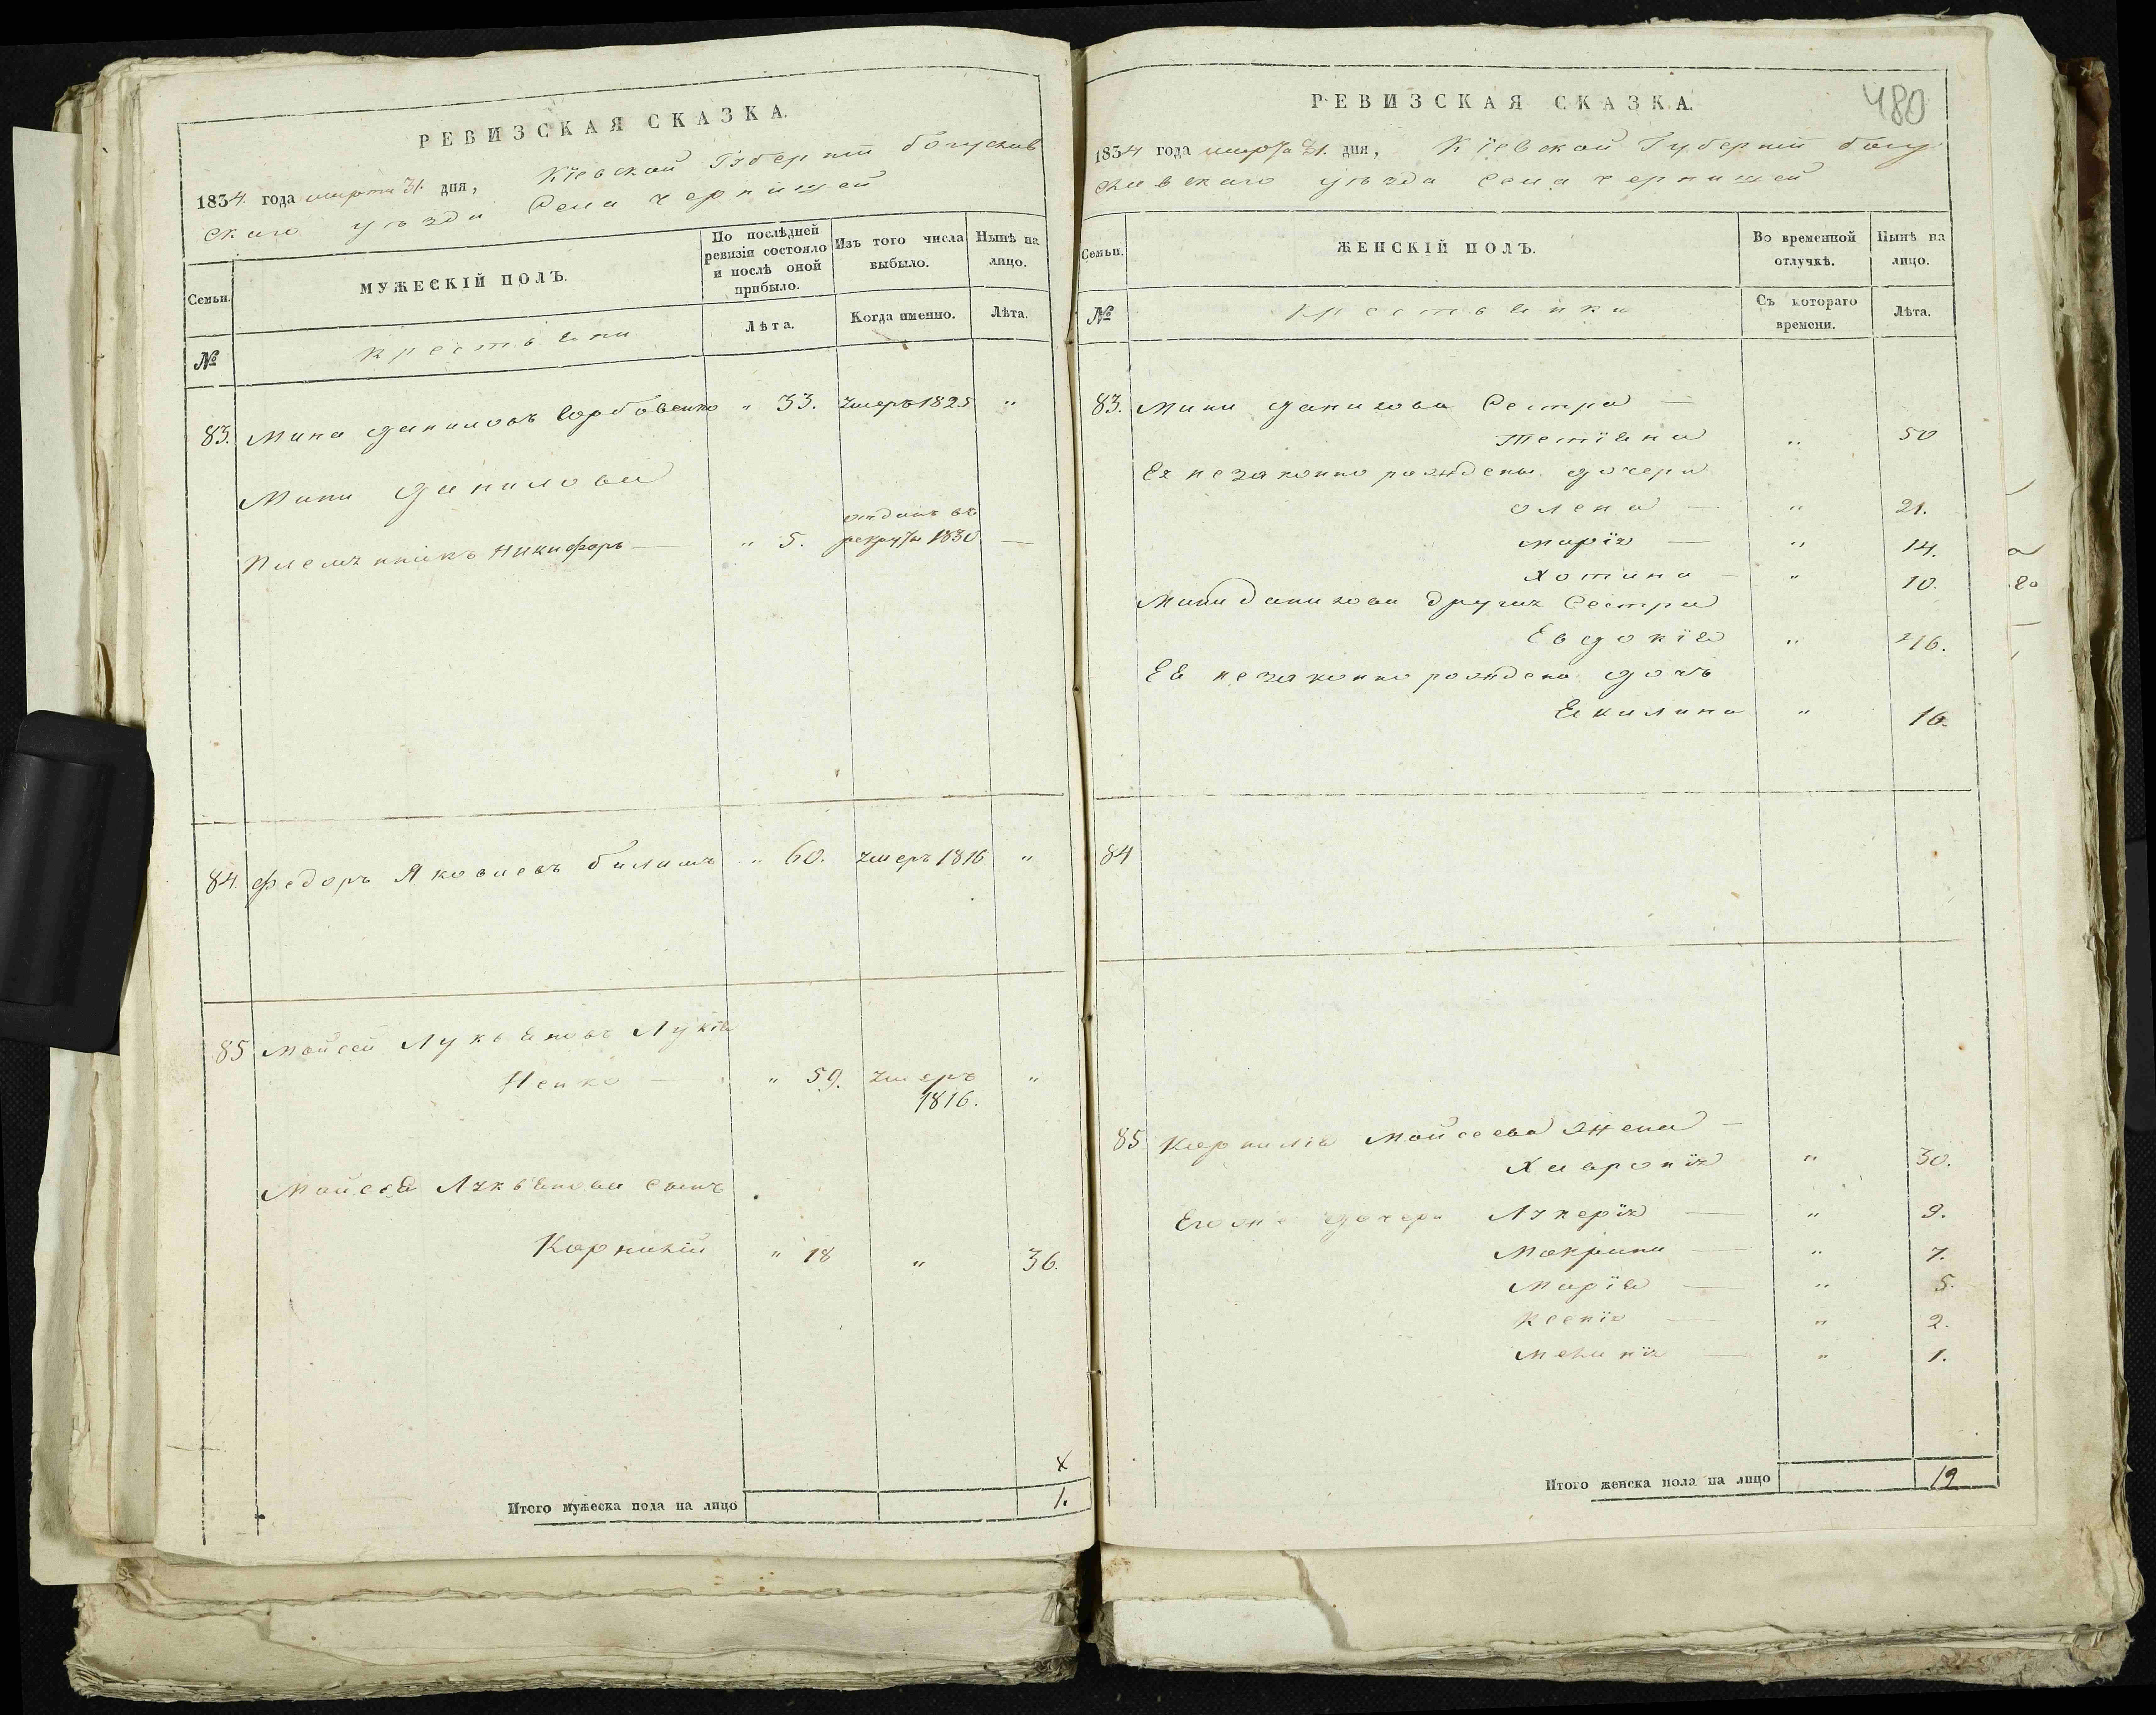 РЕВИЗСКАЯ СКАЗКА.
1834. года марта 31. дня, Кіевской Губерніи богуслав
скаго уѣзда Села чернишей
Семьи.
МУЖЕСКІЙ ПОЛЪ.
По послѣдней ревизіи состояло и послѣ оной прибыло.
Изъ того числа выбыло.
Нынѣ на лицо.
№
крестьяни
Лѣта.
Когда именно.
Лѣта.
83. Мина даниловъ " 33. умеръ 1825 "
Мини данилова
отданъ въ
Племянникъ Никифоръ — " 5. рекруты 1830 —
84. Федоръ Яковлевъ " 60. умеръ 1816 "
85 Мойсей Лукьяновъ Лукія
ненко — " 59. умеръ "
1816.
Мойсея Лукьянова сынъ
Корнилій " 18 " 36.
х
Итого мужеска пола на лицо 1.
480
РЕВИЗСКАЯ СКАЗКА.
1834 года марта 31. дня, Кіевской Губерніи богу
славскаго уѣзда Села чернишей
Семьи.
ЖЕНСКІЙ ПОЛЪ.
Во временной отлучкѣ.
Нынѣ на лицо.
№
крестьянки
Съ котораго времени.
Лѣта.
83. Мини данилова Сестра —
Тетіана " 50
Ея незаконно рождены дочери
олена — " 21.
марія — " 14.
Хотина — " 10.
Мини данилова другая Сестра
Евдокія " 46.
Ея незаконно рождена дочь
Акилина " 16.
84
85 Корнилія Мойсеева жена —
Хавронія " 30.
Его же дочери Лукерія — " 9.
Макрина — " 7.
Марія — " 5.
Ксенія — " 2.
Меланія — " 1.
Итого женска пола на лицо 12